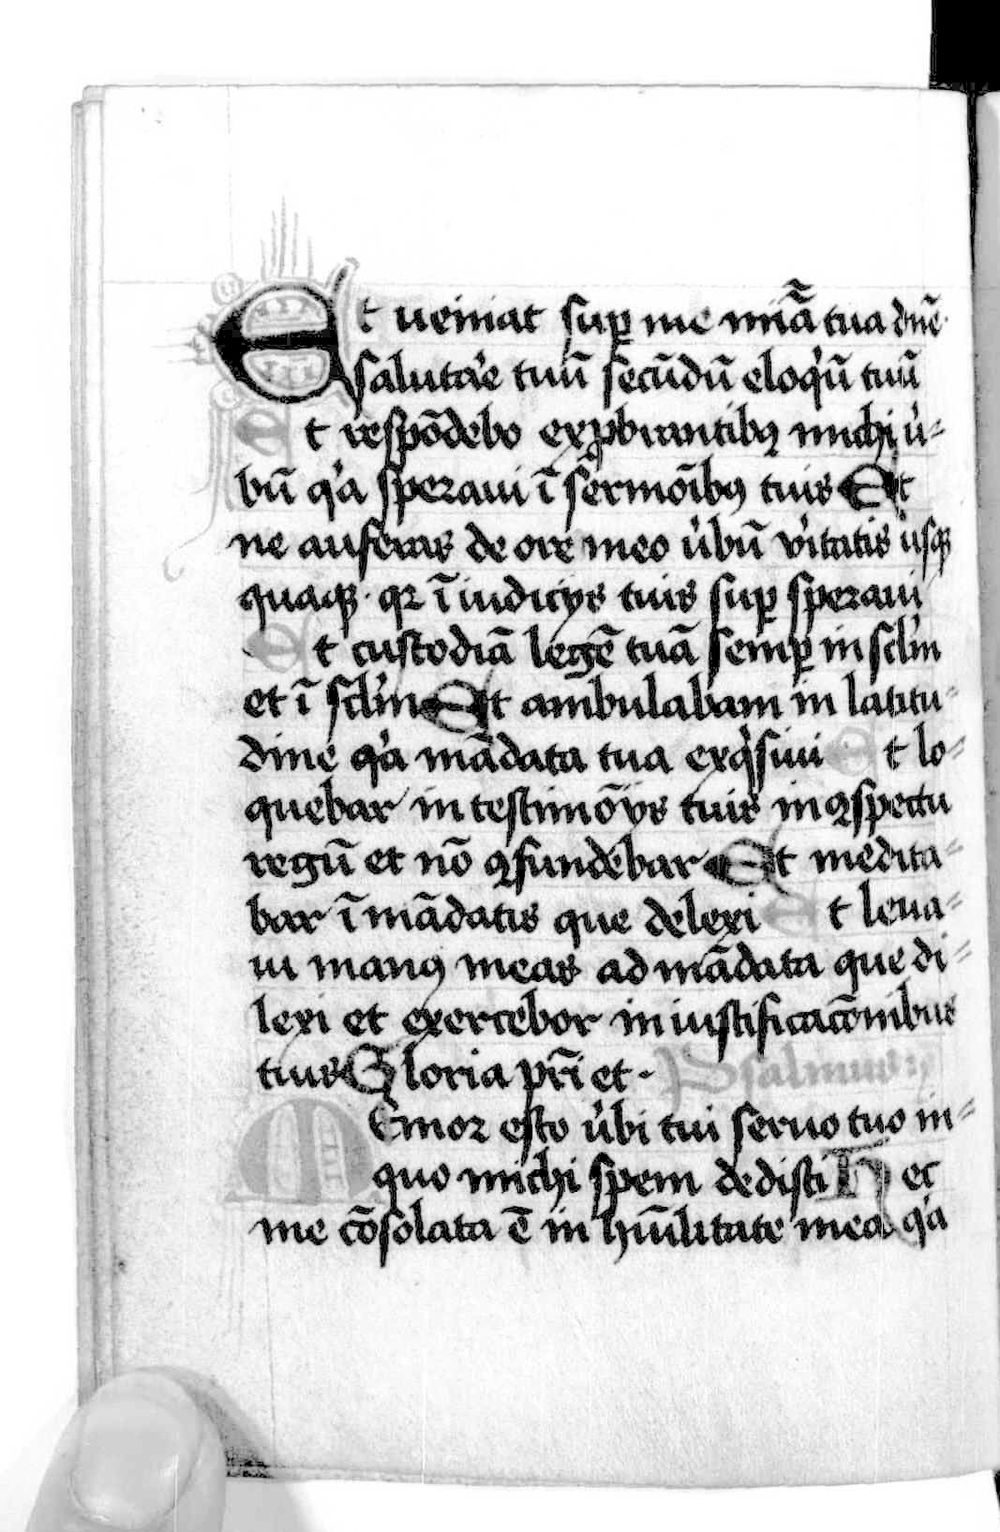 Et ueniat sup me miã tua dnẽ·
saluta'e tuũ secũdũ eloq'ũ tuũ
Et respõdebo exprobrantibꝯ michi u'⸗
bũ q'a speraui ĩ sermõibꝯ tuis Et
ne auferas de ore meo u'bũ v'itatis usqꝫ
quaqꝫ · qꝛ ĩ iudicijs tuis sup speraui
Et custodiã legẽ tuã semp in sclm̃
et ĩ sclm̃ Et ambulabam in latitu⸗
dine q'a mãdata tua exq'siui Et lo⸗
quebar in testimõijs tuis in ꝯspectu
regũ et nõ ꝯfundebar Et medita⸗
bar ĩ mãdatis que delexi Et leua⸗
ui manꝯ meas ad mãdata que di⸗
lexi et exercebor in iustificacõnibus
tuis Gloria pr̃i et · Psalmus:
Memor esto u'bi tui seruo tuo in⸗
quo michi spem dedisti Hec
me cõsolata ẽ in hũilitate mea q'a